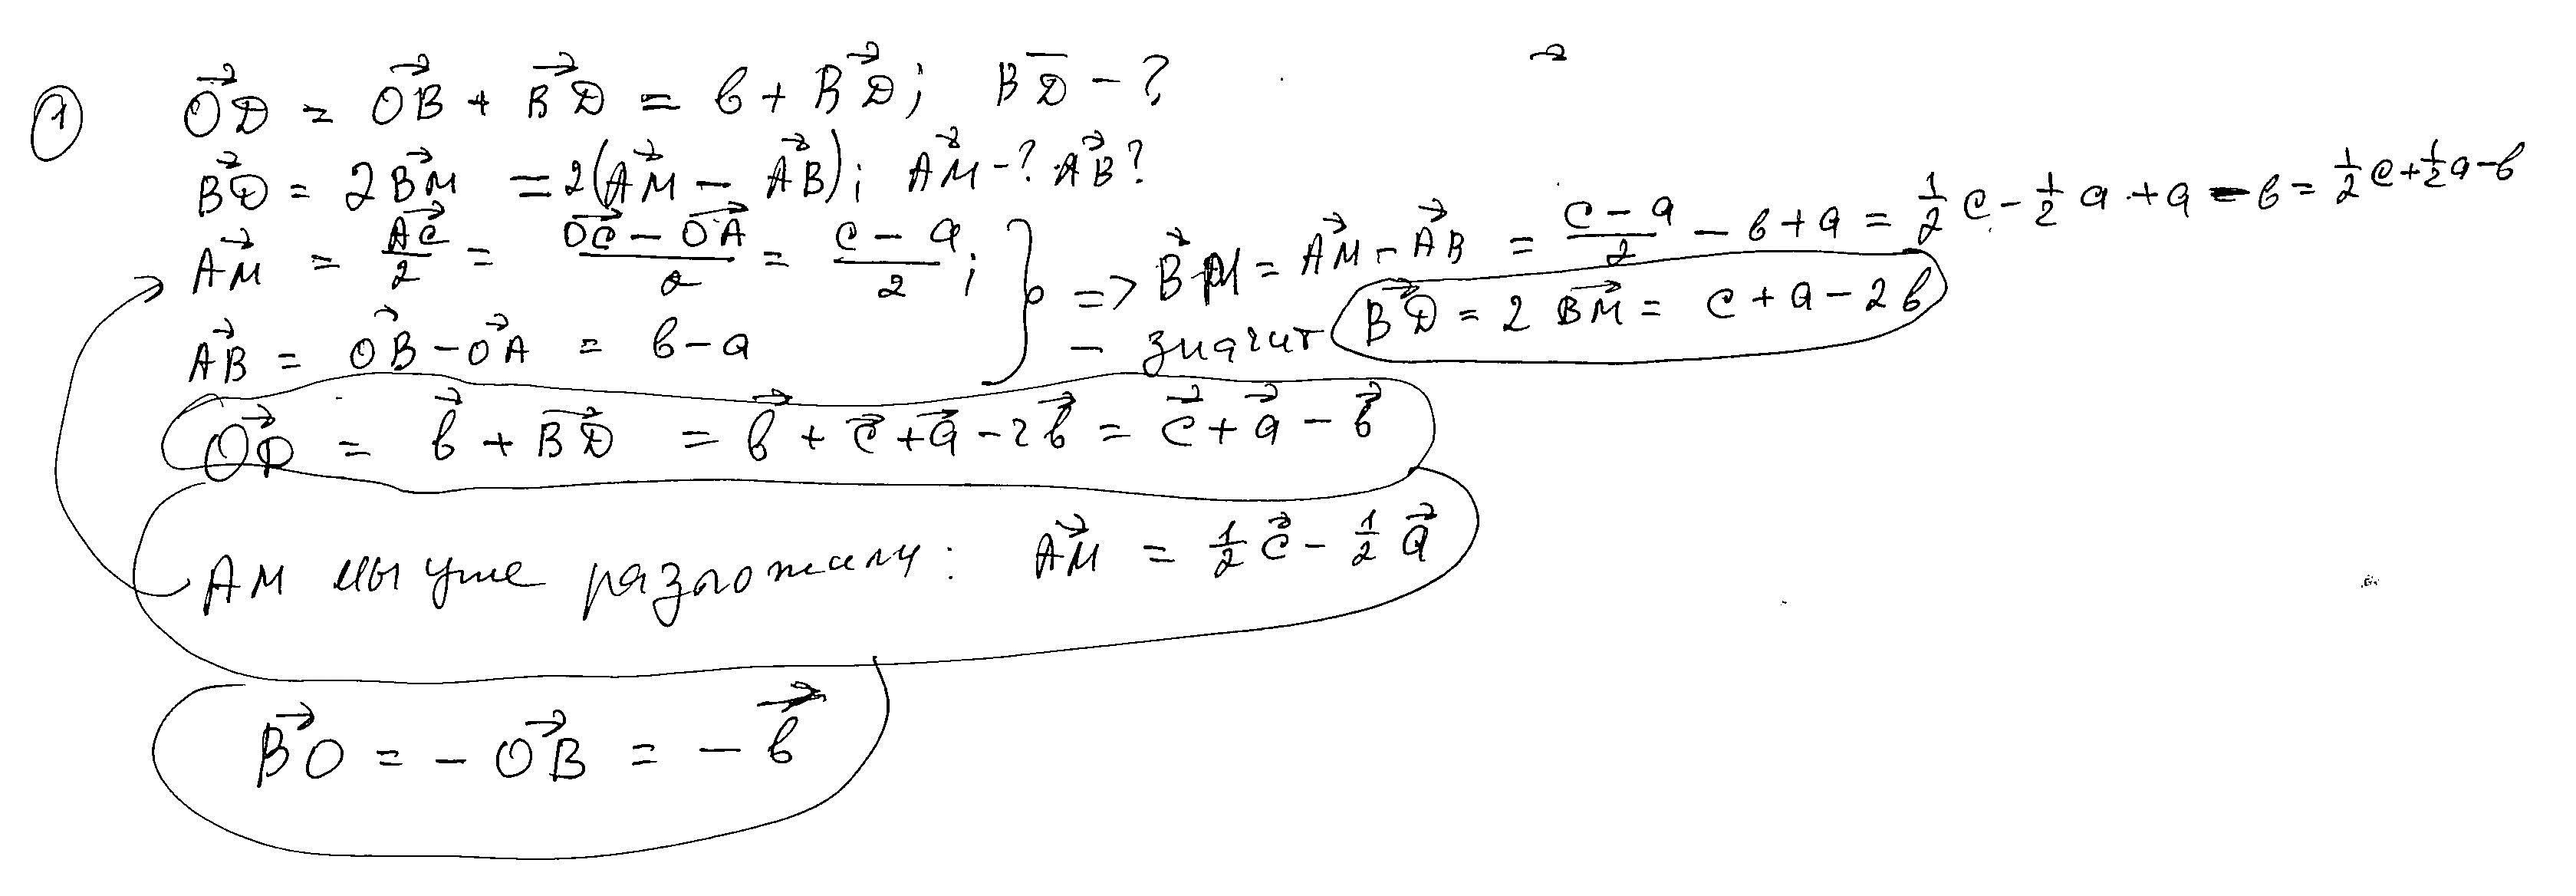 ① O⃗D = O⃗B + B⃗D = в + B⃗D; B̅D̅ - ?
B⃗D = 2B⃗M = 2(A⃗M - A⃗B); A⃗M - ? A⃗B?
A⃗M = A⃗C/2 = (O⃗C - O⃗A)/2 = (c - a)/2; } => B⃗M = A⃗M - A⃗B = (c - a)/2 - в + a = 1/2 c - 1/2 a + a - в = 1/2 c + 1/2 a - в
A⃗B = O⃗B - O⃗A = в - a
- значит B⃗D = 2 B⃗M = c + a - 2в
O⃗D = в⃗ + B⃗D = в⃗ + c⃗ + a⃗ - 2в⃗ = c⃗ + a⃗ - в⃗
AM мы уже разложили: A⃗M = 1/2 c⃗ - 1/2 a⃗
B⃗O = - O⃗B = - в⃗